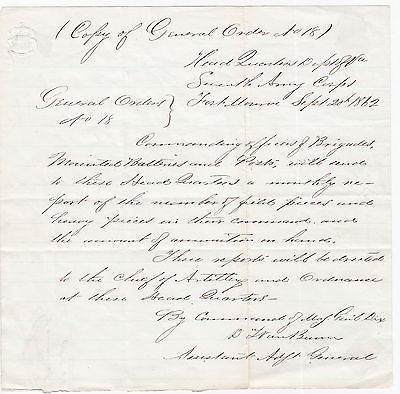 (Copy of General Order No 18)
Head Quarters Dept of Va
Seventh Army Corps
Fort Monroe Sept 20th 1862
General Orders
No 18
Commanding officers of Brigades,
Mounted Batteries and Posts, will send
to these Head Quarters a monthly re-
port of the number of field pieces and
heavy pieces in their command, and
the amount of ammunition on hand.
These reports will be directed
to the Chief of Artillery and Ordnance
at these Head Quarters—
By Command of Maj Genl Dix
D VanBuren
Assistant Adjt General